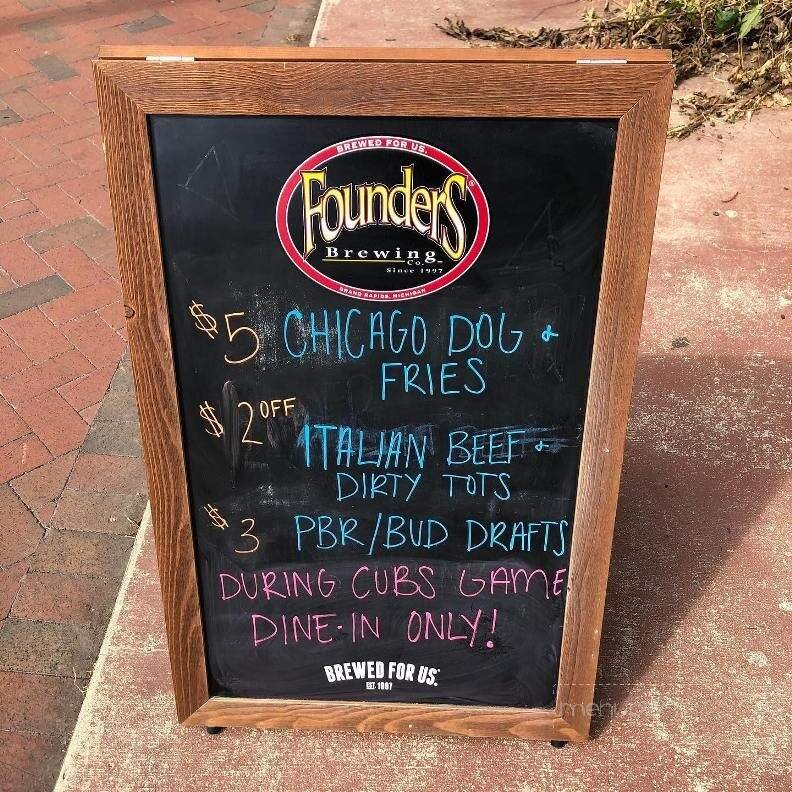 BREWED FOR US.
Founders®
Brewing
Co.
Since 1997
GRAND RAPIDS, MICHIGAN
$5 CHICAGO DOG &
FRIES
$2 OFF ITALIAN BEEF &
DIRTY TOTS
$3 PBR/BUD DRAFTS
DURING CUBS GAME
DINE-IN ONLY!
BREWED FOR US.
EST. 1997